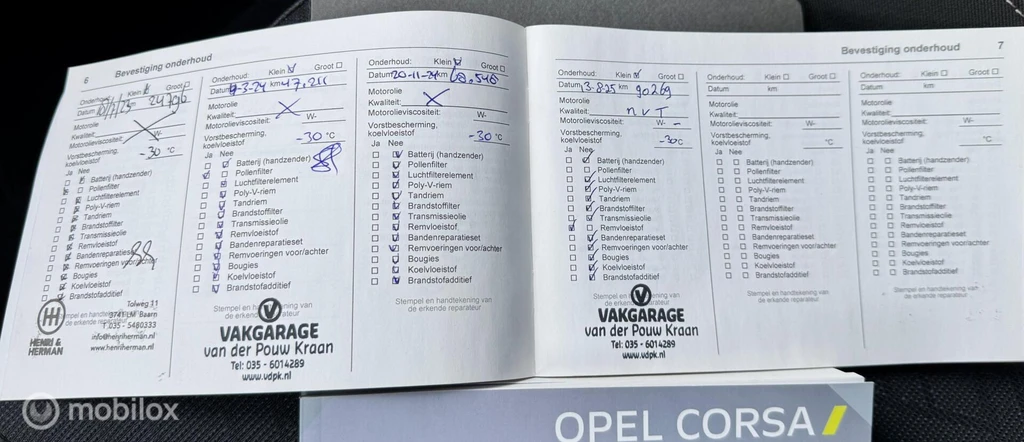 6 Bevestiging onderhoud
Onderhoud: Klein Groot
Datum 23 24796
Motorolie
Kwaliteit:
Motorolieviscositeit: W-
Vorstbescherming, koelvloeistof -30 °C
Ja Nee
Batterij (handzender)
Pollenfilter
Luchtfilterelement
Poly-V-riem
Tandriem
Brandstoffilter
Transmissieolie
Remvloeistof
Bandenreparatieset
Remvoeringen voor/achter
Bougies
Koelvloeistof
Brandstofadditief
Stempel en handtekening van
de erkende reparateur
HENRI & HERMAN
Tolweg 11
3741 LM Baarn
T 035 - 5480333
info@henriherman.nl
www.henriherman.nl
Onderhoud: Klein Groot
Datum -3-24 km 47.211
Motorolie
Kwaliteit:
Motorolieviscositeit: W-
Vorstbescherming,
koelvloeistof -30 °C
Ja Nee
Batterij (handzender)
Pollenfilter
Luchtfilterelement
Poly-V-riem
Tandriem
Brandstoffilter
Transmissieolie
Remvloeistof
Bandenreparatieset
Remvoeringen voor/achter
Bougies
Koelvloeistof
Brandstofadditief
Stempel en handtekening van
de erkende reparateur
VAKGARAGE
van der Pouw Kraan
Tel: 035 - 6014289
www.vdpk.nl
Onderhoud: Klein Groot
Datum 20-11-24 km .546
Motorolie
Kwaliteit:
Motorolieviscositeit: W-
Vorstbescherming,
koelvloeistof -30 °C
Ja Nee
Batterij (handzender)
Pollenfilter
Luchtfilterelement
Poly-V-riem
Tandriem
Brandstoffilter
Transmissieolie
Remvloeistof
Bandenreparatieset
Remvoeringen voor/achter
Bougies
Koelvloeistof
Brandstofadditief
Stempel en handtekening van
de erkende reparateur
Bevestiging onderhoud 7
Onderhoud: Klein Groot
Datum 13-8-25 km 90269
Motorolie
Kwaliteit: nvt
Motorolieviscositeit: W- -
Vorstbescherming,
koelvloeistof -30 C
Ja Nee
Batterij (handzender)
Pollenfilter
Luchtfilterelement
Poly-V-riem
Tandriem
Brandstoffilter
Transmissieolie
Remvloeistof
Bandenreparatieset
Remvoeringen voor/achter
Bougies
Koelvloeistof
Brandstofadditief
Stempel en handtekening van
de erkende reparateur
VAKGARAGE
van der Pouw Kraan
Tel: 035 - 6014289
www.vdpk.nl
Onderhoud: Klein Groot
Datum km
Motorolie
Kwaliteit:
Motorolieviscositeit: W-
Vorstbescherming,
koelvloeistof °C
Ja Nee
Batterij (handzender)
Pollenfilter
Luchtfilterelement
Poly-V-riem
Tandriem
Brandstoffilter
Transmissieolie
Remvloeistof
Bandenreparatieset
Remvoeringen voor/achter
Bougies
Koelvloeistof
Brandstofadditief
Stempel en handtekening van
de erkende reparateur
Onderhoud: Klein Groot
Datum km
Motorolie
Kwaliteit:
Motorolieviscositeit: W-
Vorstbescherming,
koelvloeistof °C
Ja Nee
Batterij (handzender)
Pollenfilter
Luchtfilterelement
Poly-V-riem
Tandriem
Brandstoffilter
Transmissieolie
Remvloeistof
Bandenreparatieset
Remvoeringen voor/achter
Bougies
Koelvloeistof
Brandstofadditief
Stempel en handtekening van
de erkende reparateur
OPEL CORSA
mobilox